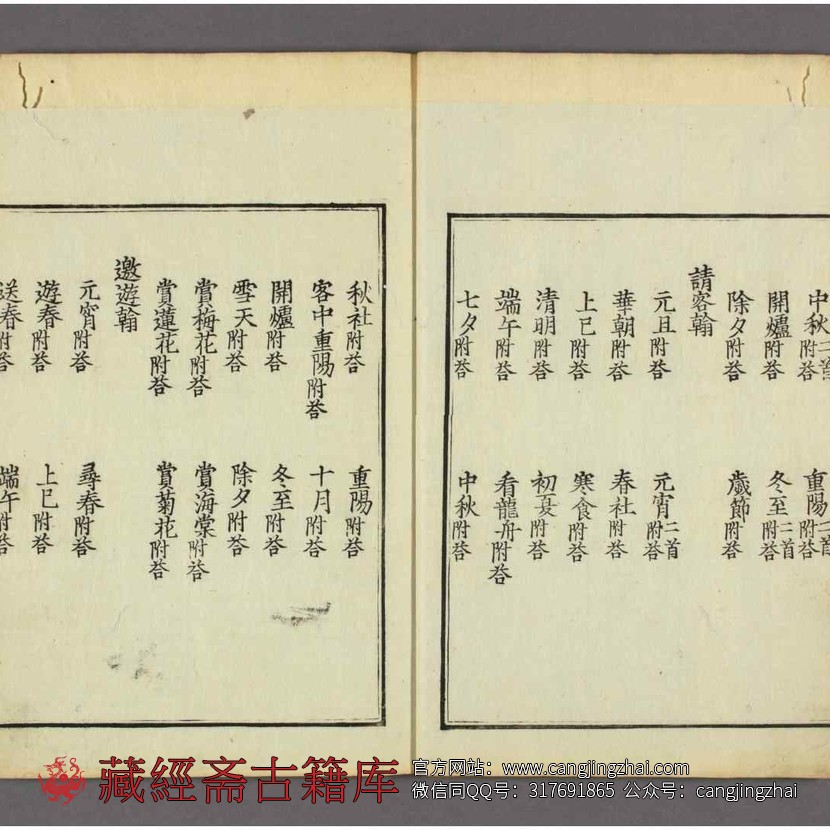 中秋二首附荅 重陽二首附荅
開爐附荅 冬至二首附荅
除夕附荅 歲節附荅
請客翰
元旦附荅 元宵二首附荅
華朝附荅 春社附荅
上巳附荅 寒食附荅
清明附荅 初夏附荅
端午附荅 看龍舟附荅
七夕附荅 中秋附荅
秋社附荅 重陽附荅
客中重陽附荅 十月附荅
開爐附荅 冬至附荅
雪天附荅 除夕附荅
賞梅花附荅 賞海棠附荅
賞蓮花附荅 賞菊花附荅
邀遊翰
元宵附荅 尋春附荅
遊春附荅 上巳附荅
送春附荅 端午附荅
藏經斋古籍库
官方网站：www.cangjingzhai.com
微信同QQ号：317691865 公众号：cangjingzhai